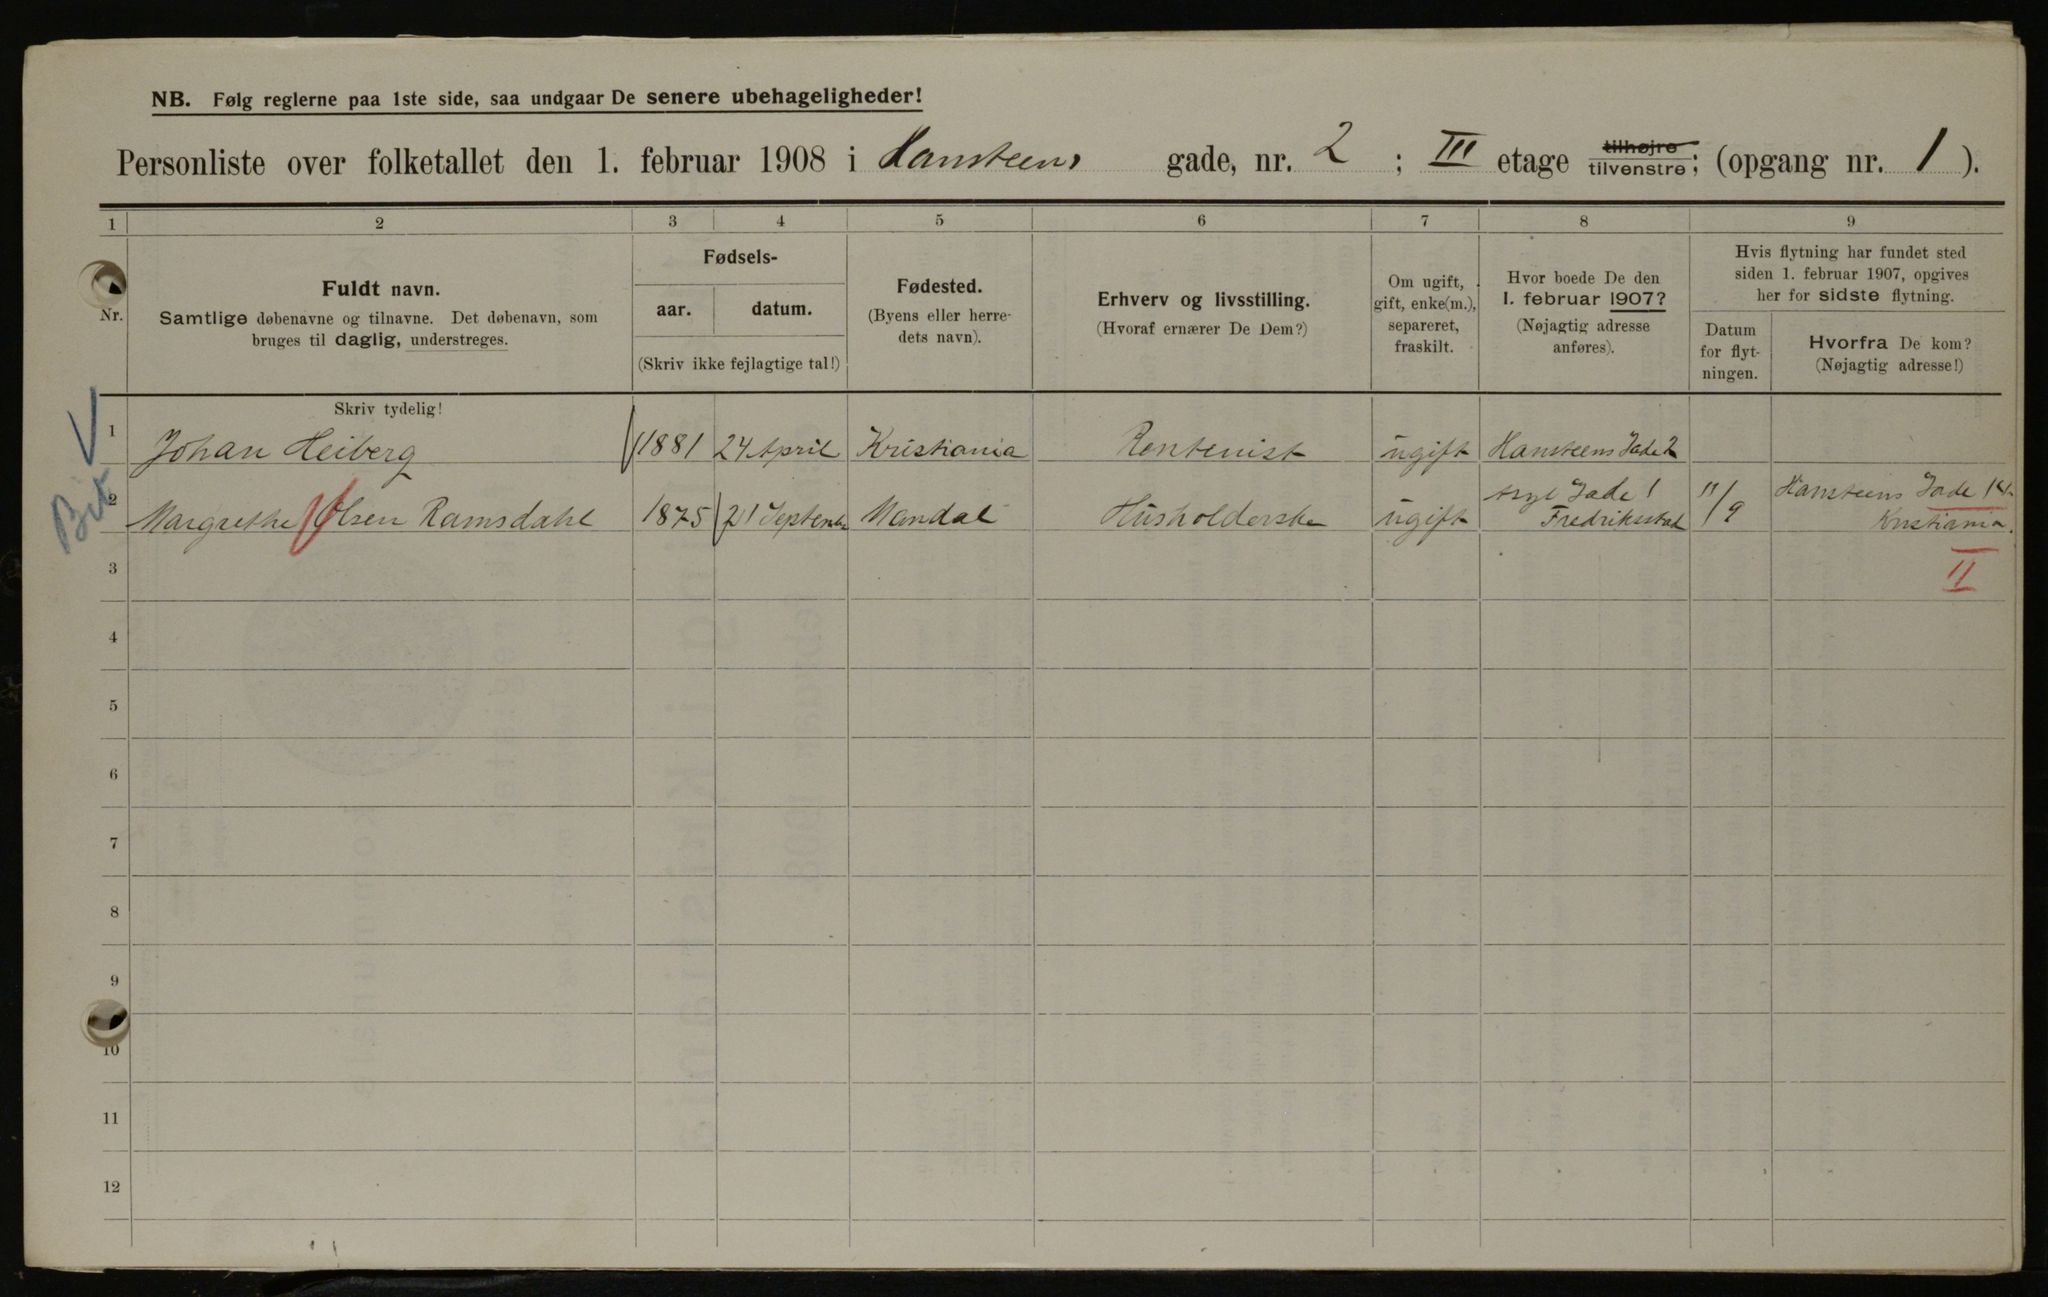 NB. Følg reglerne paa 1ste side, saa undgaar De senere ubehageligheder!
Personliste over folketallet den 1. februar 1908 i Hansteens gade, nr. 2 ; III etage tilhøjre tilvenstre; (opgang nr. 1 ).
1 2 3 4 5 6 7 8 9
Nr.
Fuldt navn.
Samtlige døbenavne og tilnavne. Det døbenavn, som
bruges til daglig, understreges.
Fødsels-
aar. datum.
(Skriv ikke fejlagtige tal!)
Fødested.
(Byens eller herre-
dets navn).
Erhverv og livsstilling.
(Hvoraf ernærer De Dem?)
Om ugift,
gift, enke(m.),
separeret,
fraskilt.
Hvor boede De den
1. februar 1907?
(Nøjagtig adresse
anføres).
Hvis flytning har fundet sted
siden 1. februar 1907, opgives
her for sidste flytning.
Datum
for flyt-
ningen.
Hvorfra De kom?
(Nøjagtig adresse!)
Skriv tydelig!
1 Johan Heiberg 1881 24 April Kristiania Rentenist ugift Hansteens Gade 2
2 Margrethe Olsen Ramsdahl 1875 21 September Mandal Husholderske ugift Gade 1 Fredriksstad 11/9 Hansteens Gade
Kristiania.
II
3
4
5
6
7
8
9
10
11
12